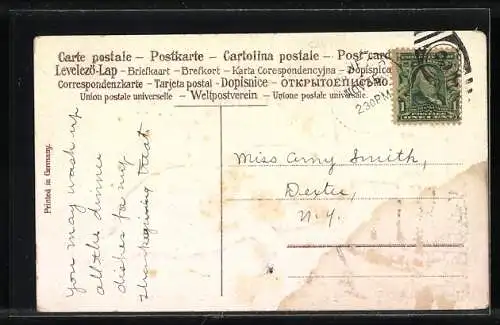 Carte postale – Postkarte – Cartolina postale – Post card
Levelező-Lap – Briefkaart – Brefkort – Karta Corespondencyjna – Dopisnica
Correspondenzkarte – Tarjeta postal – Dopisnice – ОТКРЫТОЕ ПИСЬМО
Union postale universelle – Weltpostverein – Unione postale universale.
2 30 PM
1
Printed in Germany.
you may wash up
all the dinner
dishes for my
thanksgiving treat
Miss Amy Smith,
Dexter,
N.Y.